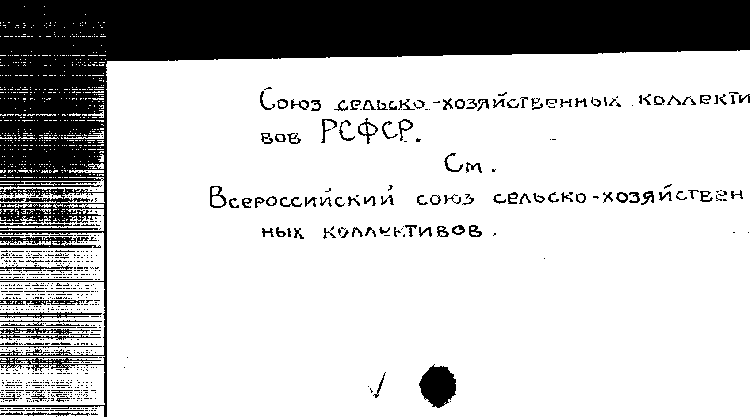 Союз сельско-хозяйственных коллекти
вов РСФСР.
См.
Всероссийский союз сельско-хозяйствен
ных коллективов.